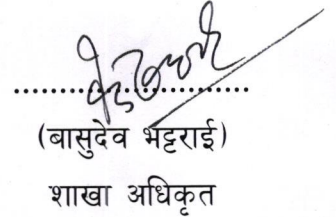 ....................................
(बासुदेव भट्टराई)
शाखा अधिकृत